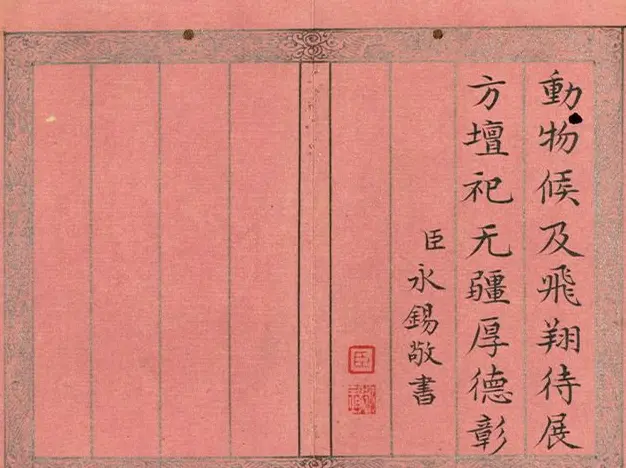 動物候及飛翔待展
方壇祀无疆厚德彰
臣永錫敬書
臣